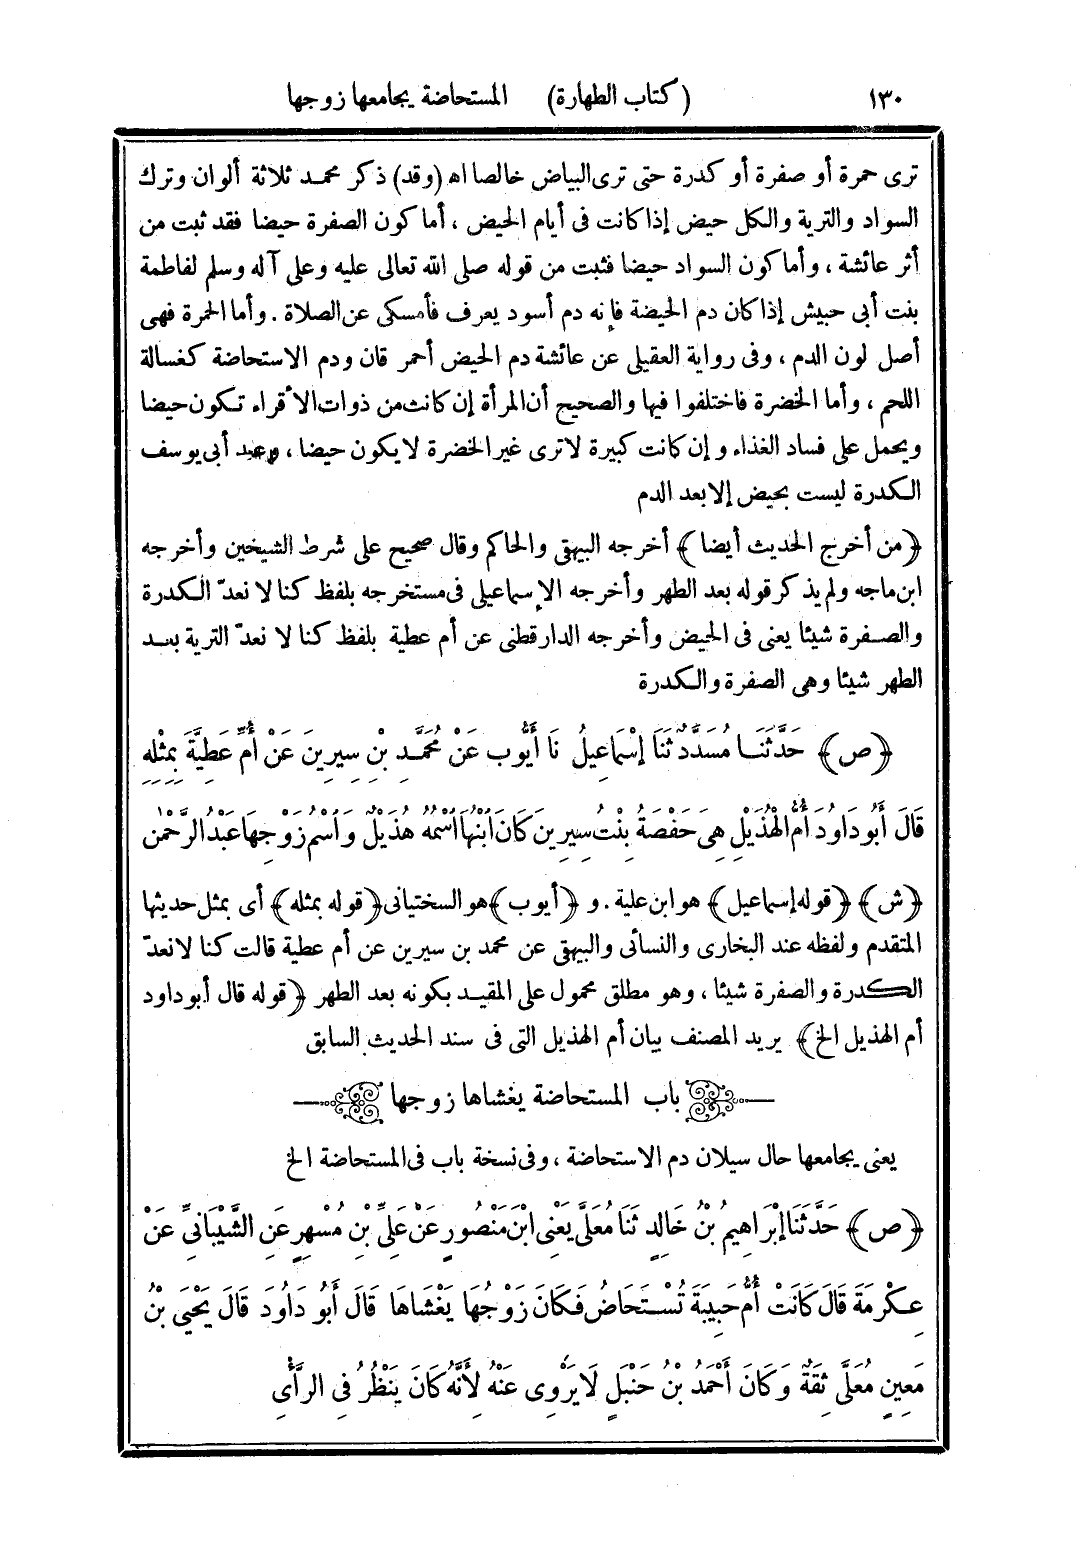 ١٣٠ (كتاب الطهارة) المستحاضة يجامعها زوجها
ترى حمرة أو صفرة أو كدرة حتى ترى البياض خالصا اه (وقد) ذكر محمد ثلاثة ألوان وترك
السواد والترية والكل حيض إذا كانت فى أيام الحيض ، أما كون الصفرة حيضا فقد ثبت من
أثر عائشة ، وأما كون السواد حيضا فثبت من قوله صلى الله تعالى عليه وعلى آله وسلم لفاطمة
بنت أبى حبيش إذا كان دم الحيضة فإنه دم أسود يعرف فأمسكى عن الصلاة . وأما الحمرة فهى
أصل لون الدم ، وفى رواية العقيلى عن عائشة دم الحيض أحمر قان ودم الاستحاضة كغسالة
اللحم ، وأما الخضرة فاختلفوا فيها والصحيح أن المرأة إن كانت من ذوات الأقراء تكون حيضا
ويحمل على فساد الغذاء وإن كانت كبيرة لا ترى غير الخضرة لا يكون حيضا ، وعند أبى يوسف
الكدرة ليست بحيض إلا بعد الدم
﴿من أخرج الحديث أيضا﴾ أخرجه البيهقى والحاكم وقال صحيح على شرط الشيخين وأخرجه
ابن ماجه ولم يذكر قوله بعد الطهر وأخرجه الإسماعيلى فى مستخرجه بلفظ كنا لا نعدّ الكدرة
والصفرة شيئا يعنى فى الحيض وأخرجه الدارقطنى عن أم عطية بلفظ كنا لا نعدّ الترية بعد
الطهر شيئا وهى الصفرة والكدرة
﴿ص﴾ حَدَّثَنَا مُسَدَّدٌ ثَنَا إِسْمَاعِيلُ نَا أَيُّوب عَنْ مُحَمَّدِ بْنِ سِيرِينَ عَنْ أُمِّ عَطِيَّةَ بِمِثْلِهِ
قَالَ أَبُو دَاوُدَ أُمُّ الْهُذَيْلِ هِىَ حَفْصَةُ بِنْتُ سِيرِينَ كَانَ ابْنُهَا اسْمُهُ هُذَيْلٌ وَاسْمُ زَوْجِهَا عَبْدُ الرَّحْمٰنِ
﴿ش﴾ ﴿قوله إسماعيل﴾ هو ابن علية . و ﴿أيوب﴾ هو السختيانى ﴿قوله بمثله﴾ أى بمثل حديثها
المتقدم ولفظه عند البخارى والنسائى والبيهقى عن محمد بن سيرين عن أم عطية قالت كنا لا نعدّ
الكدرة والصفرة شيئا ، وهو مطلق محمول على المقيد بكونه بعد الطهر ﴿قوله قال أبو داود
أم الهذيل الخ﴾ يريد المصنف بيان أم الهذيل التى فى سند الحديث السابق
باب المستحاضة يغشاها زوجها
يعنى يجامعها حال سيلان دم الاستحاضة ، وفى نسخة باب فى المستحاضة الخ
﴿ص﴾ حَدَّثَنَا إِبْرَاهِيمُ بْنُ خَالِدٍ ثَنَا مُعَلَّى يَعْنِى ابْنَ مَنْصُورٍ عَنْ عَلِىِّ بْنِ مُسْهِرٍ عَنِ الشَّيْبَانِىِّ عَنْ
عِكْرِمَةَ قَالَ كَانَتْ أُمُّ حَبِيبَةَ تُسْتَحَاضُ فَكَانَ زَوْجُهَا يَغْشَاهَا قَالَ أَبُو دَاوُدَ قَالَ يَحْيَى بْنُ
مَعِينٍ مُعَلَّى ثِقَةٌ وَكَانَ أَحْمَدُ بْنُ حَنْبَلٍ لَا يَرْوِى عَنْهُ لِأَنَّهُ كَانَ يَنْظُرُ فِى الرَّأْىِ